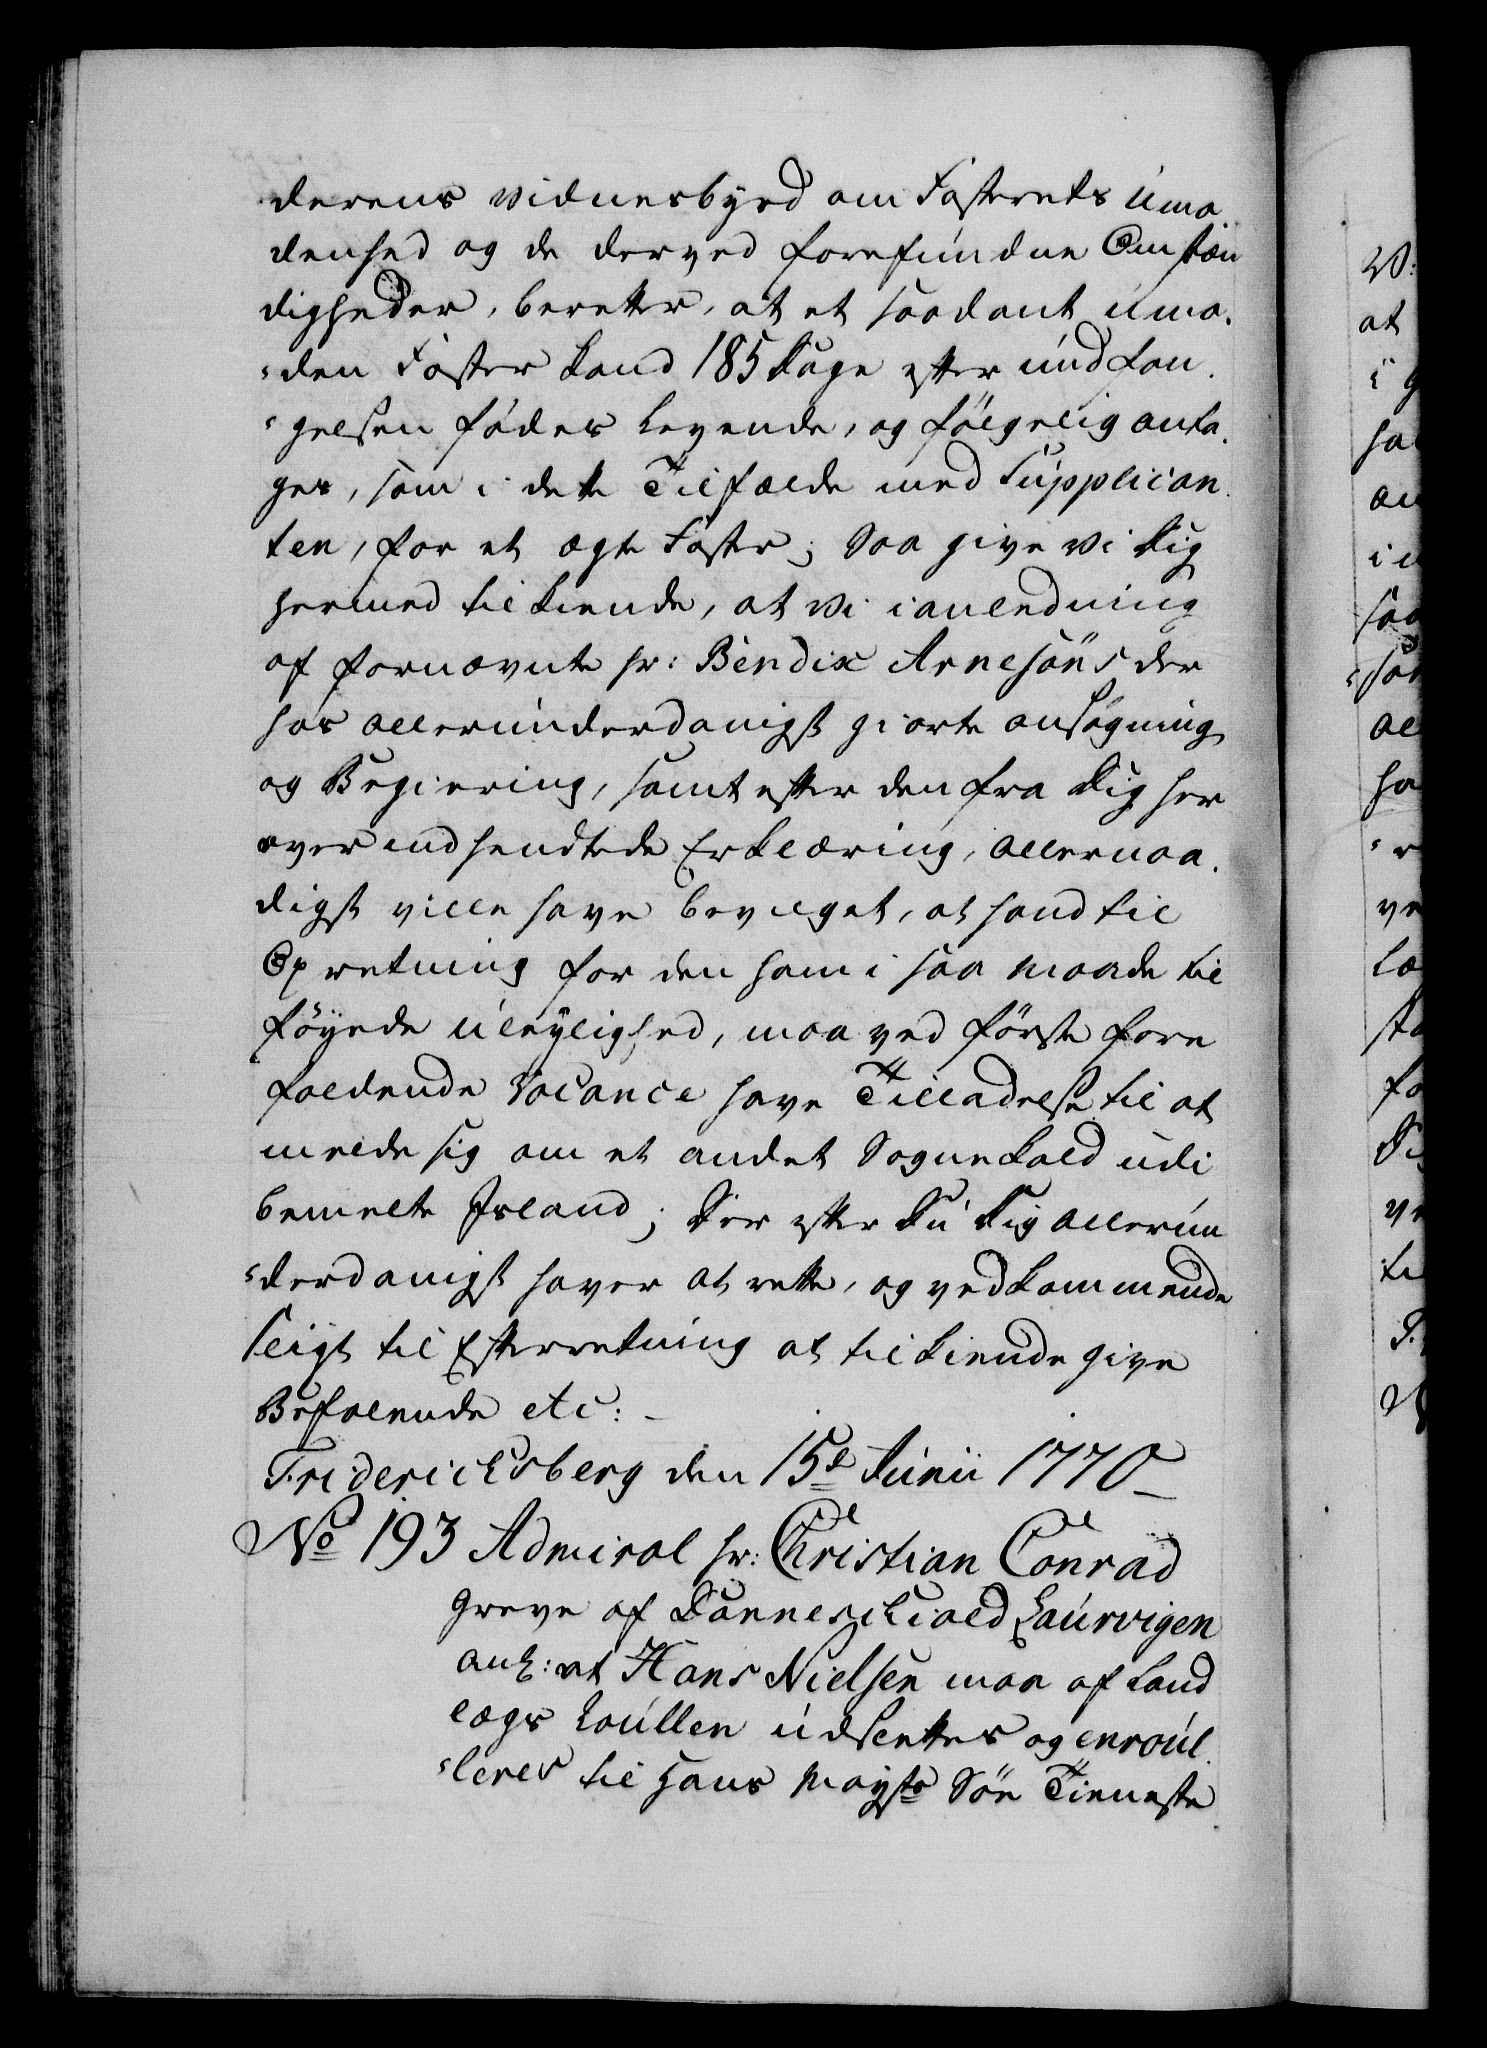 derens Vidnesbyrd om Fosterets umo
denhed og de derved forefundne Omstæn
digheder, beretter, at et saadant umo-
den Foster kand 185 Dage efter undfan-
gelsen födes Levende, og fölgelig anta-
ges, som i dette Tilfælde med Supplican
ten, for et ægte Foster; Saa give Vi Dig
hermed tilkiende, at Vi i anledning
af fornævnte hr: Bendix Arnesöns der
hos allerunderdanigst giorte ansögning
og Begiering, samt efter den fra Dig her
over indsendtede Erklæring, allernaa-
digst ville have bevilget, at hand til
Opretning for den ham i saa maade til
föyede Uleylighed, maa ved förste fore
faldende Vacance have Tilladelse til at
melde sig om et andet Sognekald udi
bemelte Island; Der efter Du Dig allerun
derdanigst haver at rette, og vedkommende
sligt til Efterretning at tilkiende give
Befalende etc:
Friderichsberg den 15de Junii 1770
No 193 Admiral hr: Christian Conrad
Greve af Danneschiold Laurvigen
anl: at Hans Nielsen maa af Land
lægs Roullen udslettes og enroul-
leres til Hans Maysts Söe Tieneste